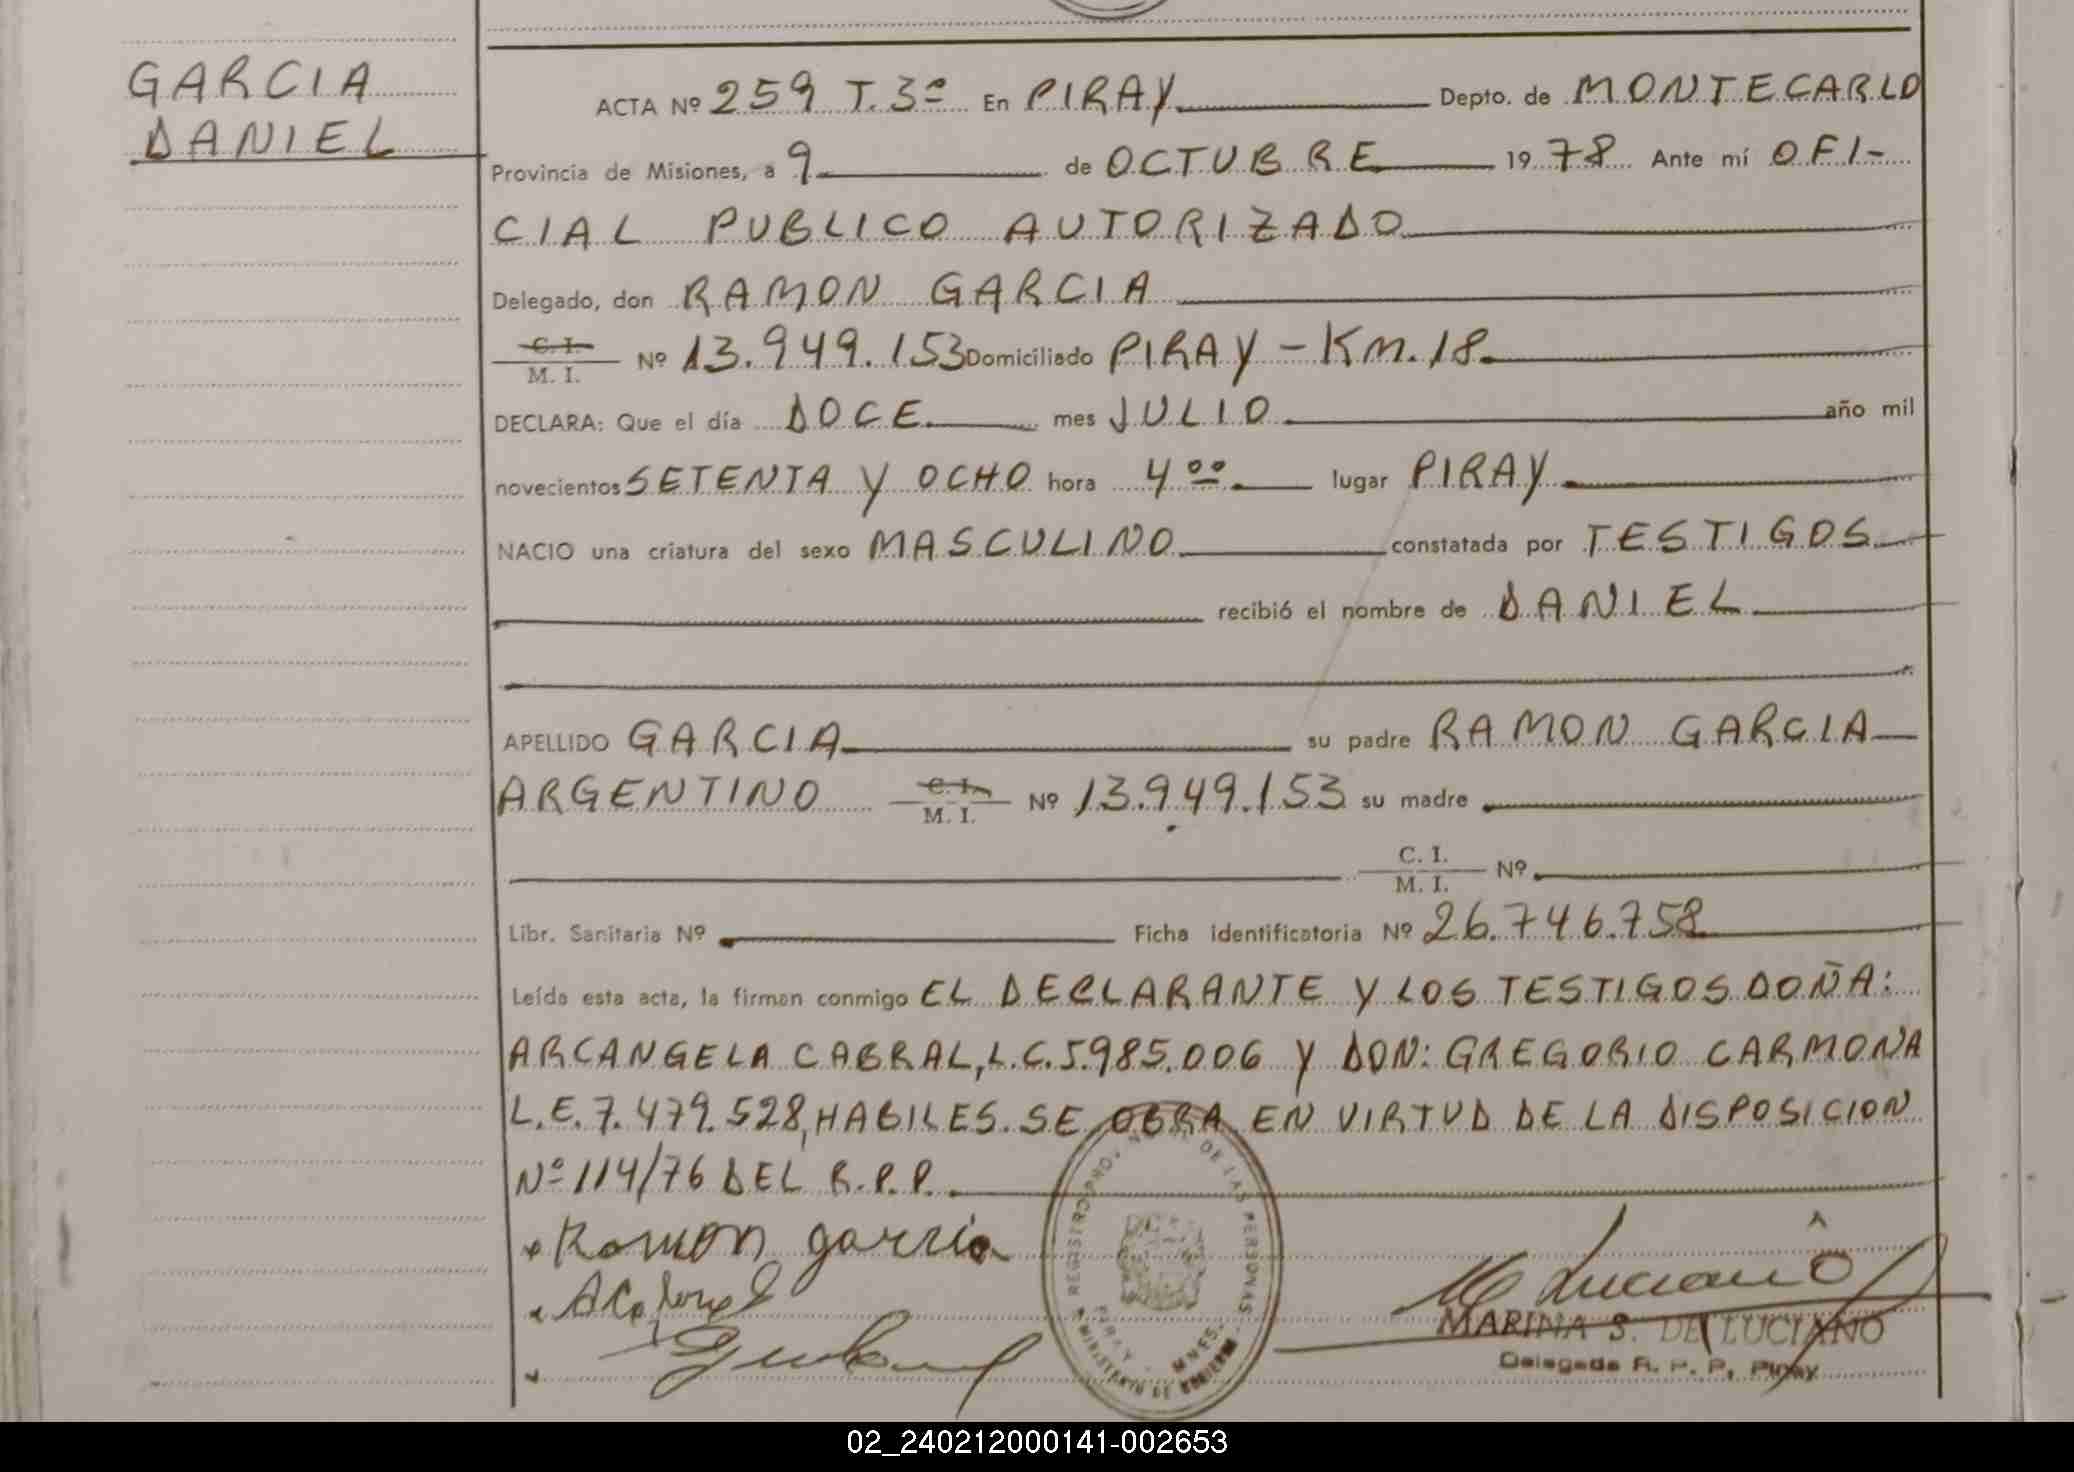 GARCIA
DANIEL
ACTA Nº 259 T. 3º En PIRAY Depto. de MONTECARLO
Provincia de Misiones, a 9 de OCTUBRE 1978 Ante mí OFI-
CIAL PUBLICO AUTORIZADO
Delegado, don RAMON GARCIA
C. I.
M. I. Nº 13.949.153 Domiciliado PIRAY - KM. 18.
DECLARA: Que el día DOCE mes JULIO año mil
novecientos SETENTA Y OCHO hora 4ºº lugar PIRAY
NACIO una criatura del sexo MASCULINO constatada por TESTIGOS
recibió el nombre de DANIEL
APELLIDO GARCIA su padre RAMON GARCIA
ARGENTINO C. I. M. I. Nº 13.949.153 su madre
C. I.
M. I. Nº
Libr. Sanitaria Nº Ficha identificatoria Nº 26.746.758
Leída esta acta, la firman conmigo EL DECLARANTE Y LOS TESTIGOS DOÑA:
ARCANGELA CABRAL, L.C. 5.985.006 Y DON: GREGORIO CARMONA
L.E. 7.479.528, HABILES. SE OBRA EN VIRTUD DE LA DISPOSICION
Nº 114/76 DEL R.P.P.
Ramon garcia
REGISTRO PROV. DE LAS PERSONAS
PIRAY - MNES.
MINISTERIO DE GOBIERNO
M Luciano
MARINA S. DE LUCIANO
Delegada R. P. P. Piray
02_240212000141-002653